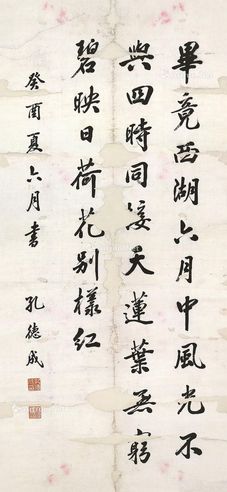 畢竟西湖六月中風光不
與四時同接天蓮葉無窮
碧映日荷花别樣红
癸酉夏六月書
孔德成